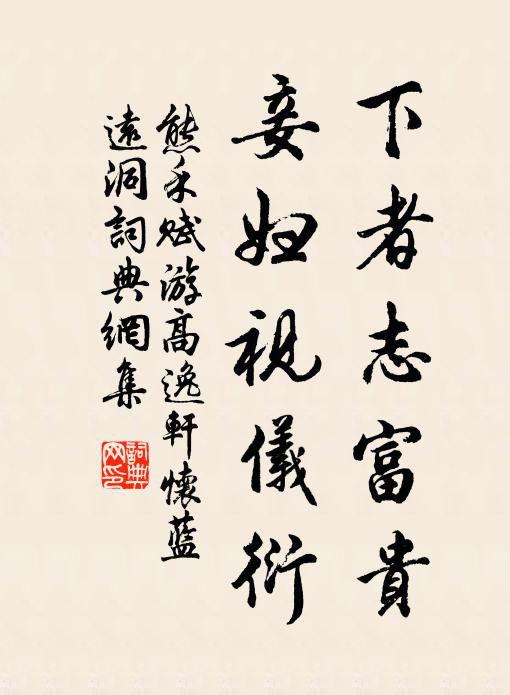 下者志富貴
妾婦視儀衍
熊禾賦游高逸軒懷藍
遠洞詞典網集
詞典網印